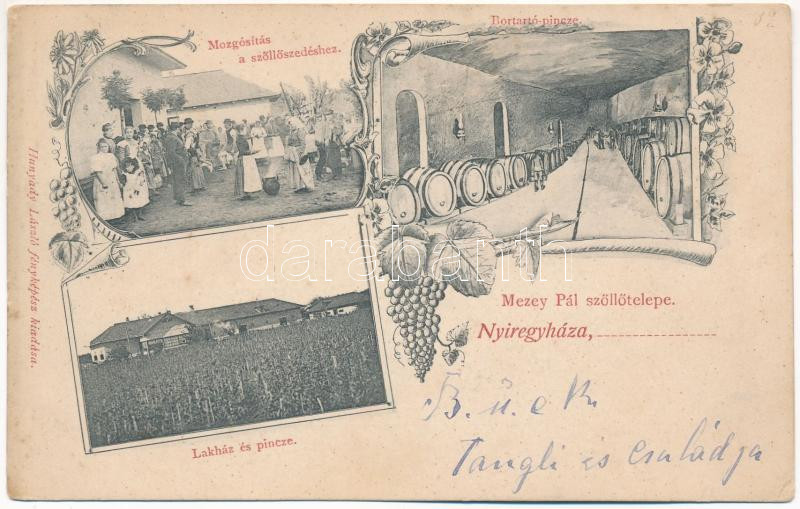 Mozgósítás
a szőllőszedéshez.
Bortartó-pincze.
Hunyady László fényképész kiadása.
darabanth
Mezey Pál szőllőtelepe.
Nyiregyháza,
Lakház és pincze.
B. ú. é k.
Tangli és családja